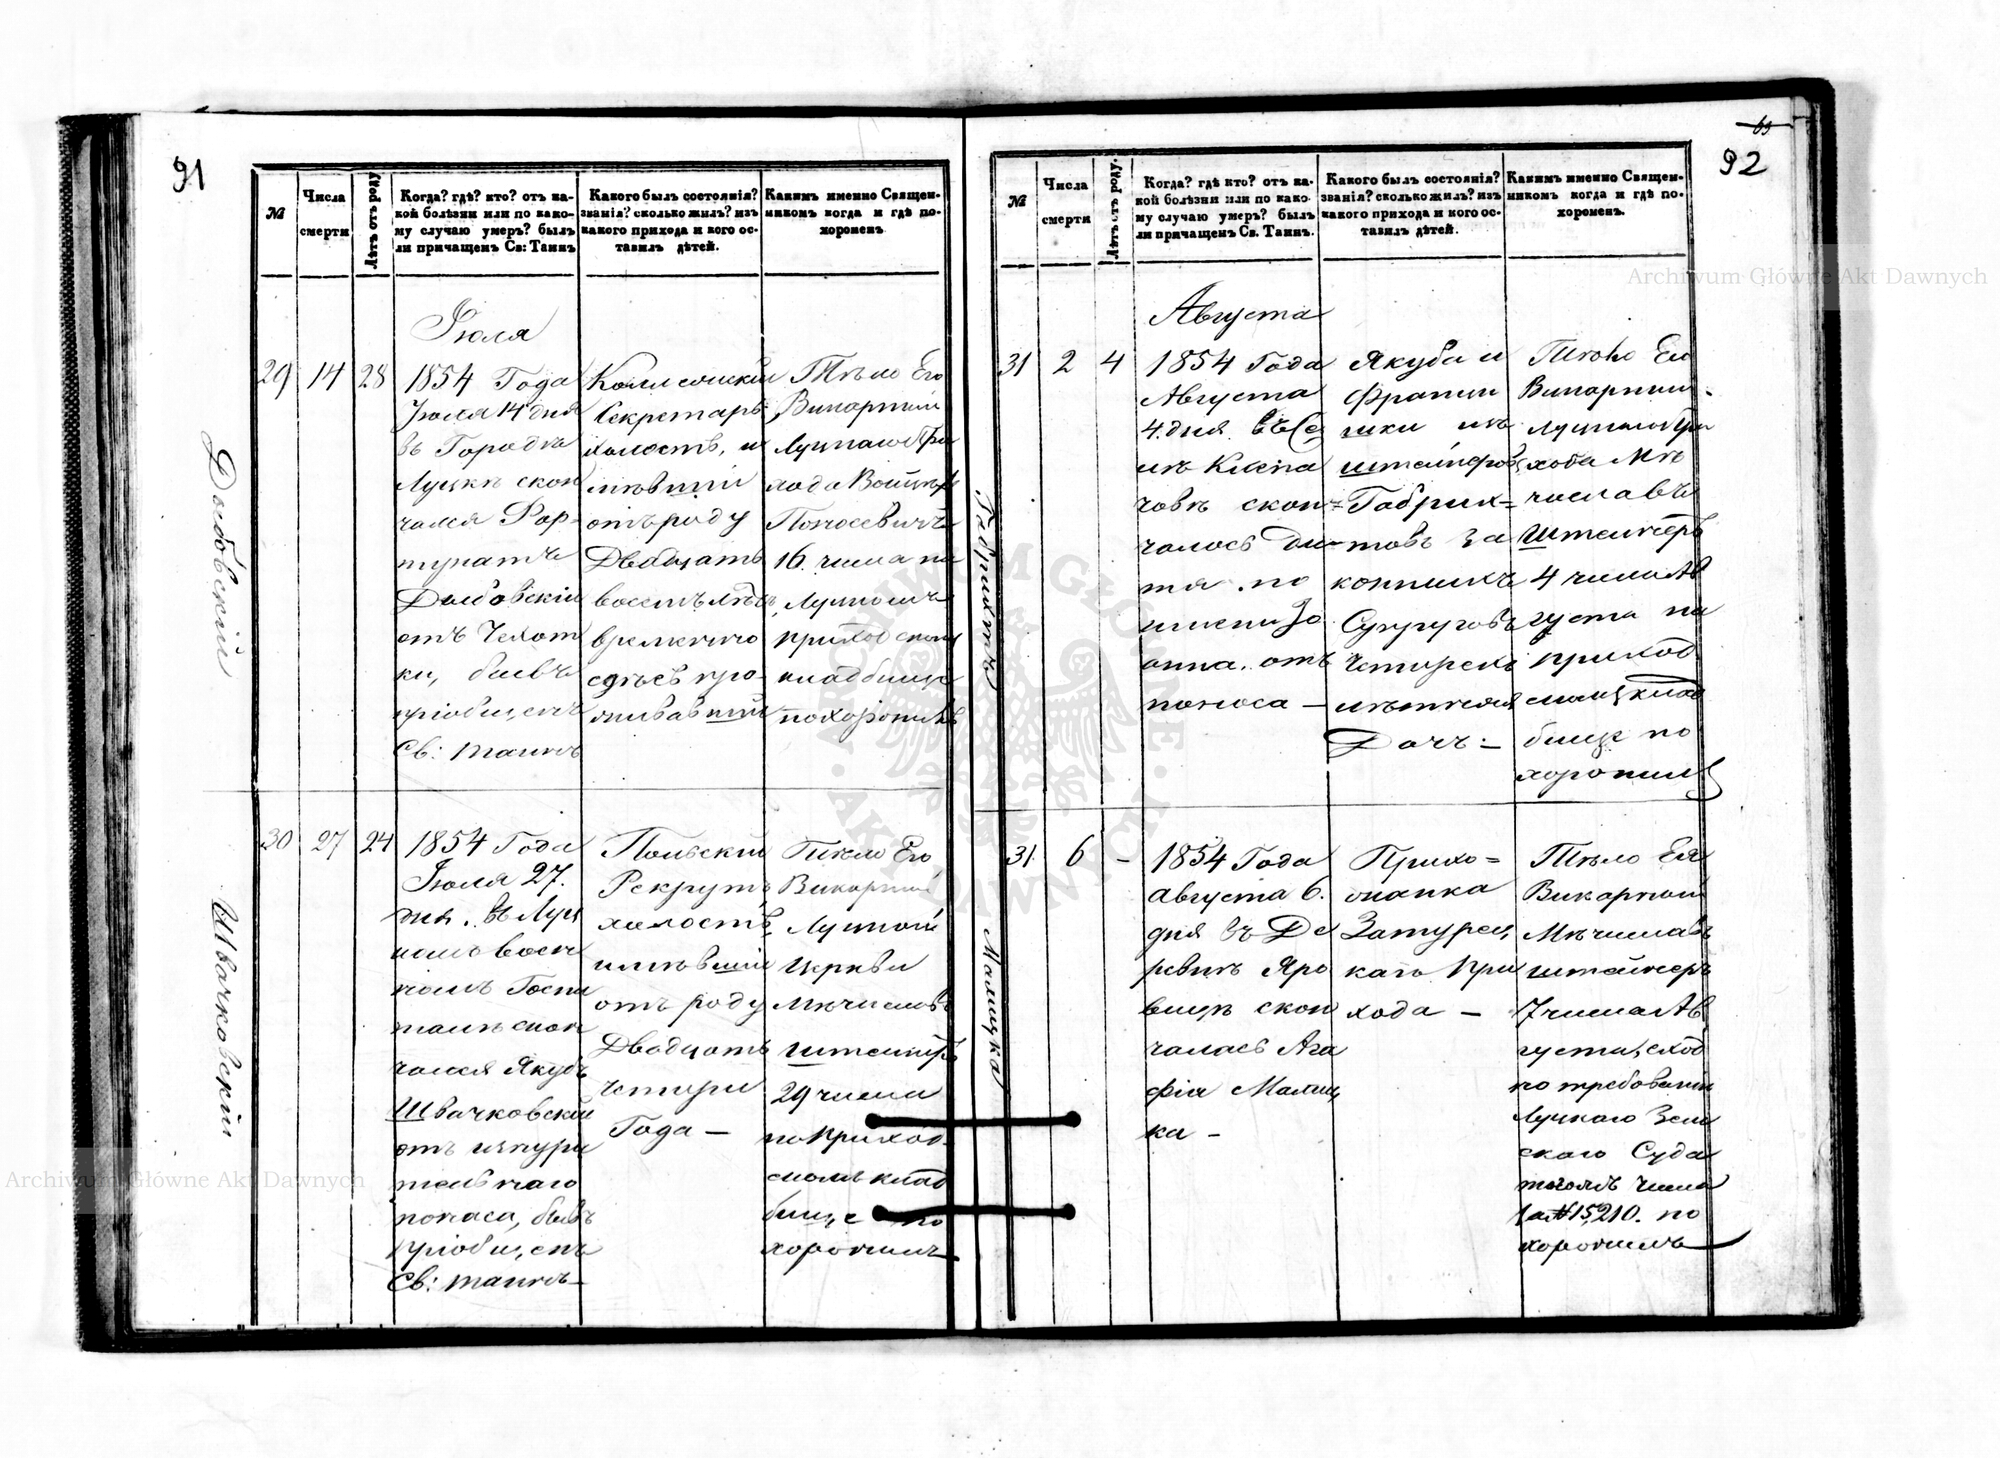 91
№
Числа
смерти
Лѣтъ отъ роду
Когда? гдѣ? кто? отъ ка-
кой болѣзни или по како-
му случаю умеръ? былъ
ли причащенъ Св: Таинъ
Какого былъ состоянія?
званія? сколько жилъ? изъ
какого прихода и кого ос-
тавилъ дѣтей.
Какимъ именно Священ-
никомъ когда и гдѣ по-
хороненъ
Іюля
29 14 28
1854 Года
Іюля 14 дня
въ Городѣ
Луцкѣ скон
чался Фор-
тунатъ
отъ Чехот
ки, бывъ
пріобщенъ
Св: таинъ
Секретарь
холостъ, и
мѣвшій
отъ роду
Двадцать
восемь лѣтъ
временно
здѣсь про-
живавшій
Тѣло Его
Викарный
Луцкаго При
хода
16. числа на
Луцкомъ
приходскомъ
кладбище
похоронилъ
30 27 24
1854 Года
Іюля 27.
дня. въ Луц
комъ воен
номъ Госпи
талѣ скон
чался Якубъ
Швачковскій
отъ изнури
тельнаго
поноса, бывъ
пріобщенъ
Св: таинъ
Польскій
Рекрутъ
холостъ,
имѣвшій
отъ роду
Двадцать
четыри
Года —
Тѣло Его
Викарный
Луцкой
Церкви
Мѣчиславъ
Штейнгеръ
29 числа
на приход-
скомъ клад
бище по
хоронилъ
Швачковскій
63
92
№
Числа
смерти
Лѣтъ отъ роду.
Когда? гдѣ кто? отъ ка-
кой болѣзни или по како-
му случаю умеръ? былъ
ли причащенъ Св. Таинъ.
Какого былъ состоянія?
званія? сколько жилъ? изъ
какого прихода и кого ос-
тавилъ дѣтей.
Какимъ именно Священ-
никомъ когда и гдѣ по-
хороненъ.
Августа
31 2 4
1854 Года
Августа
4. дня. въ Се
лѣ
човѣ скон-
чалось ди-
тя. по
имени Іо
анна. отъ
поноса —
Якуба и
Франци
шки
Габрих-
товъ за
конныхъ
Супруговъ
Четырехъ
лѣтняя
Дочь —
Тѣло Ея
Викарный
Луцкаго При
хода Мѣ
числавъ
Штейнгеръ
4 числа Ав
густа на
приход
скомъ клад
бище по
хоронилъ
Габрихтъ
31. 6 —
1854 Года
августа 6.
дня въ Де
ревнѣ Яро
вищѣ скон
чалась Ага
фія Малиц
ка —
Прихо-
жанка
Затурец
каго При
хода —
Тѣло Ея
Викарный
Мѣчиславъ
Штейнгеръ
7 числа Ав
густа,
по требованію
Луцкаго Зем
скаго Суда
числа
за № 15,210. по
хоронилъ
Малицка
Archiwum Główne Akt Dawnych
Archiwum Główne Akt Dawnych
ARCHIWUM GŁÓWNE AKT DAWNYCH